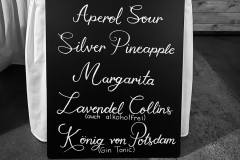 Aperol Sour
Silver Pineapple
Margarita
Lavendel Collins
(auch alkoholfrei)
König von Potsdam
(Gin Tonic)